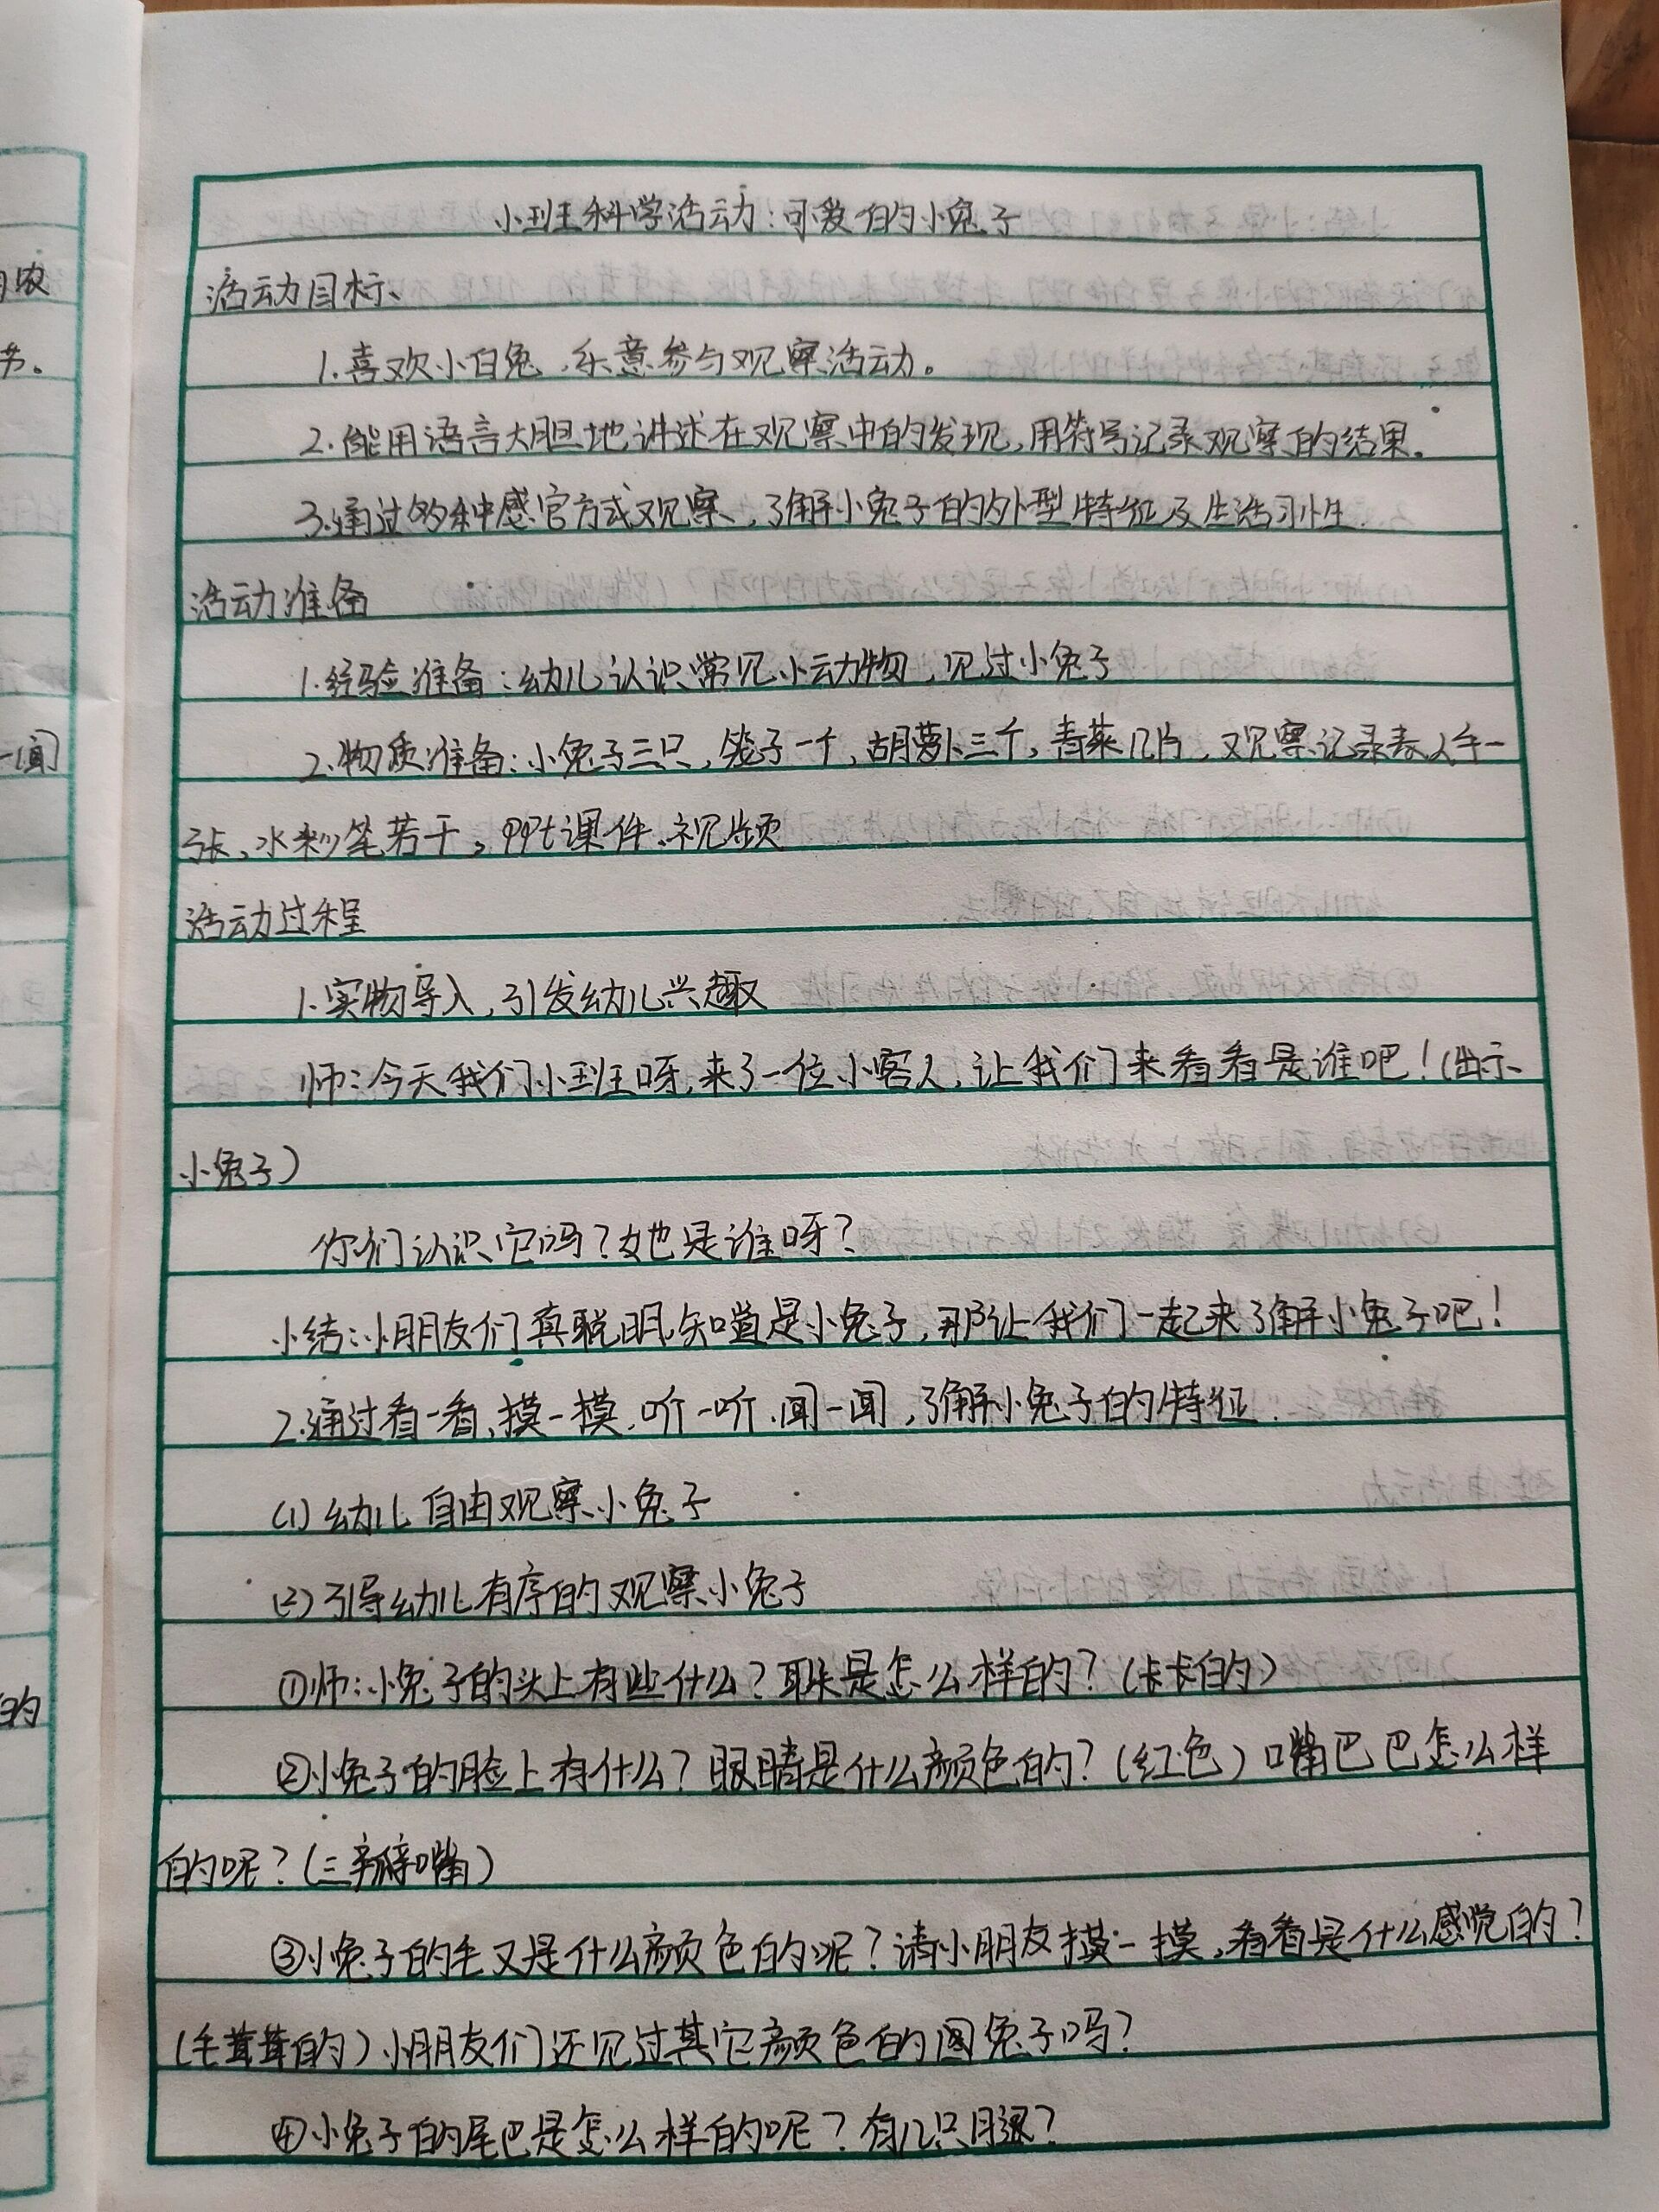 小班科学活动：可爱的小兔子
活动目标、
1.喜欢小白兔，乐意参与观察活动。
2.能用语言大胆地讲述在观察中的发现，用符号记录观察的结果。
3.通过多种感官方式观察，了解小兔子的外型特征及生活习性.
活动准备
1.经验准备：幼儿认识常见小动物，见过小兔子
2.物质准备：小兔子三只，笼子一个，胡萝卜三个，青菜几片，观察记录表人手一
张、水彩笔若干，PPt课件、视频
活动过程
1.实物导入，引发幼儿兴趣
师：今天我们小班呀，来了一位小客人，让我们来看看是谁吧！（出示、
小兔子）
你们认识它吗？她是谁呀？
小结：小朋友们真聪明，知道是小兔子，那让我们一起来了解小兔子吧！
2.通过看一看、摸一摸、听一听、闻一闻，了解小兔子的特征.
(1)幼儿自由观察小兔子
(2)引导幼儿有序的观察小兔子
①师：小兔子的头上有些什么？耳朵是怎么样的？（长长的）
②小兔子的脸上有什么？眼睛是什么颜色的？（红色）嘴巴巴怎么样
的呢？（三瓣嘴）
③小兔子的毛又是什么颜色的呢？请小朋友摸一摸，看看是什么感觉的？
（毛茸茸的）小朋友们还见过其它颜色的兔子吗？
④小兔子的尾巴是怎么样的呢？有几只腿？
农
书。
一闻
的